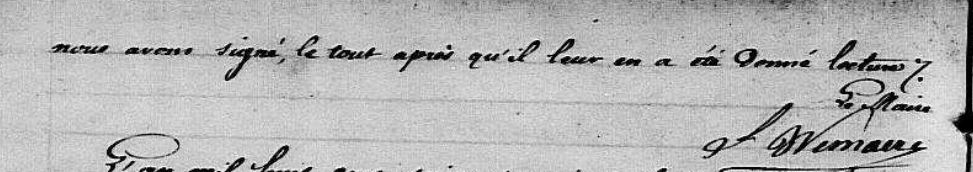 nous avons signé, le tout après qu'il leur en a été donné lecture.
Le Maire
L'an mil huit